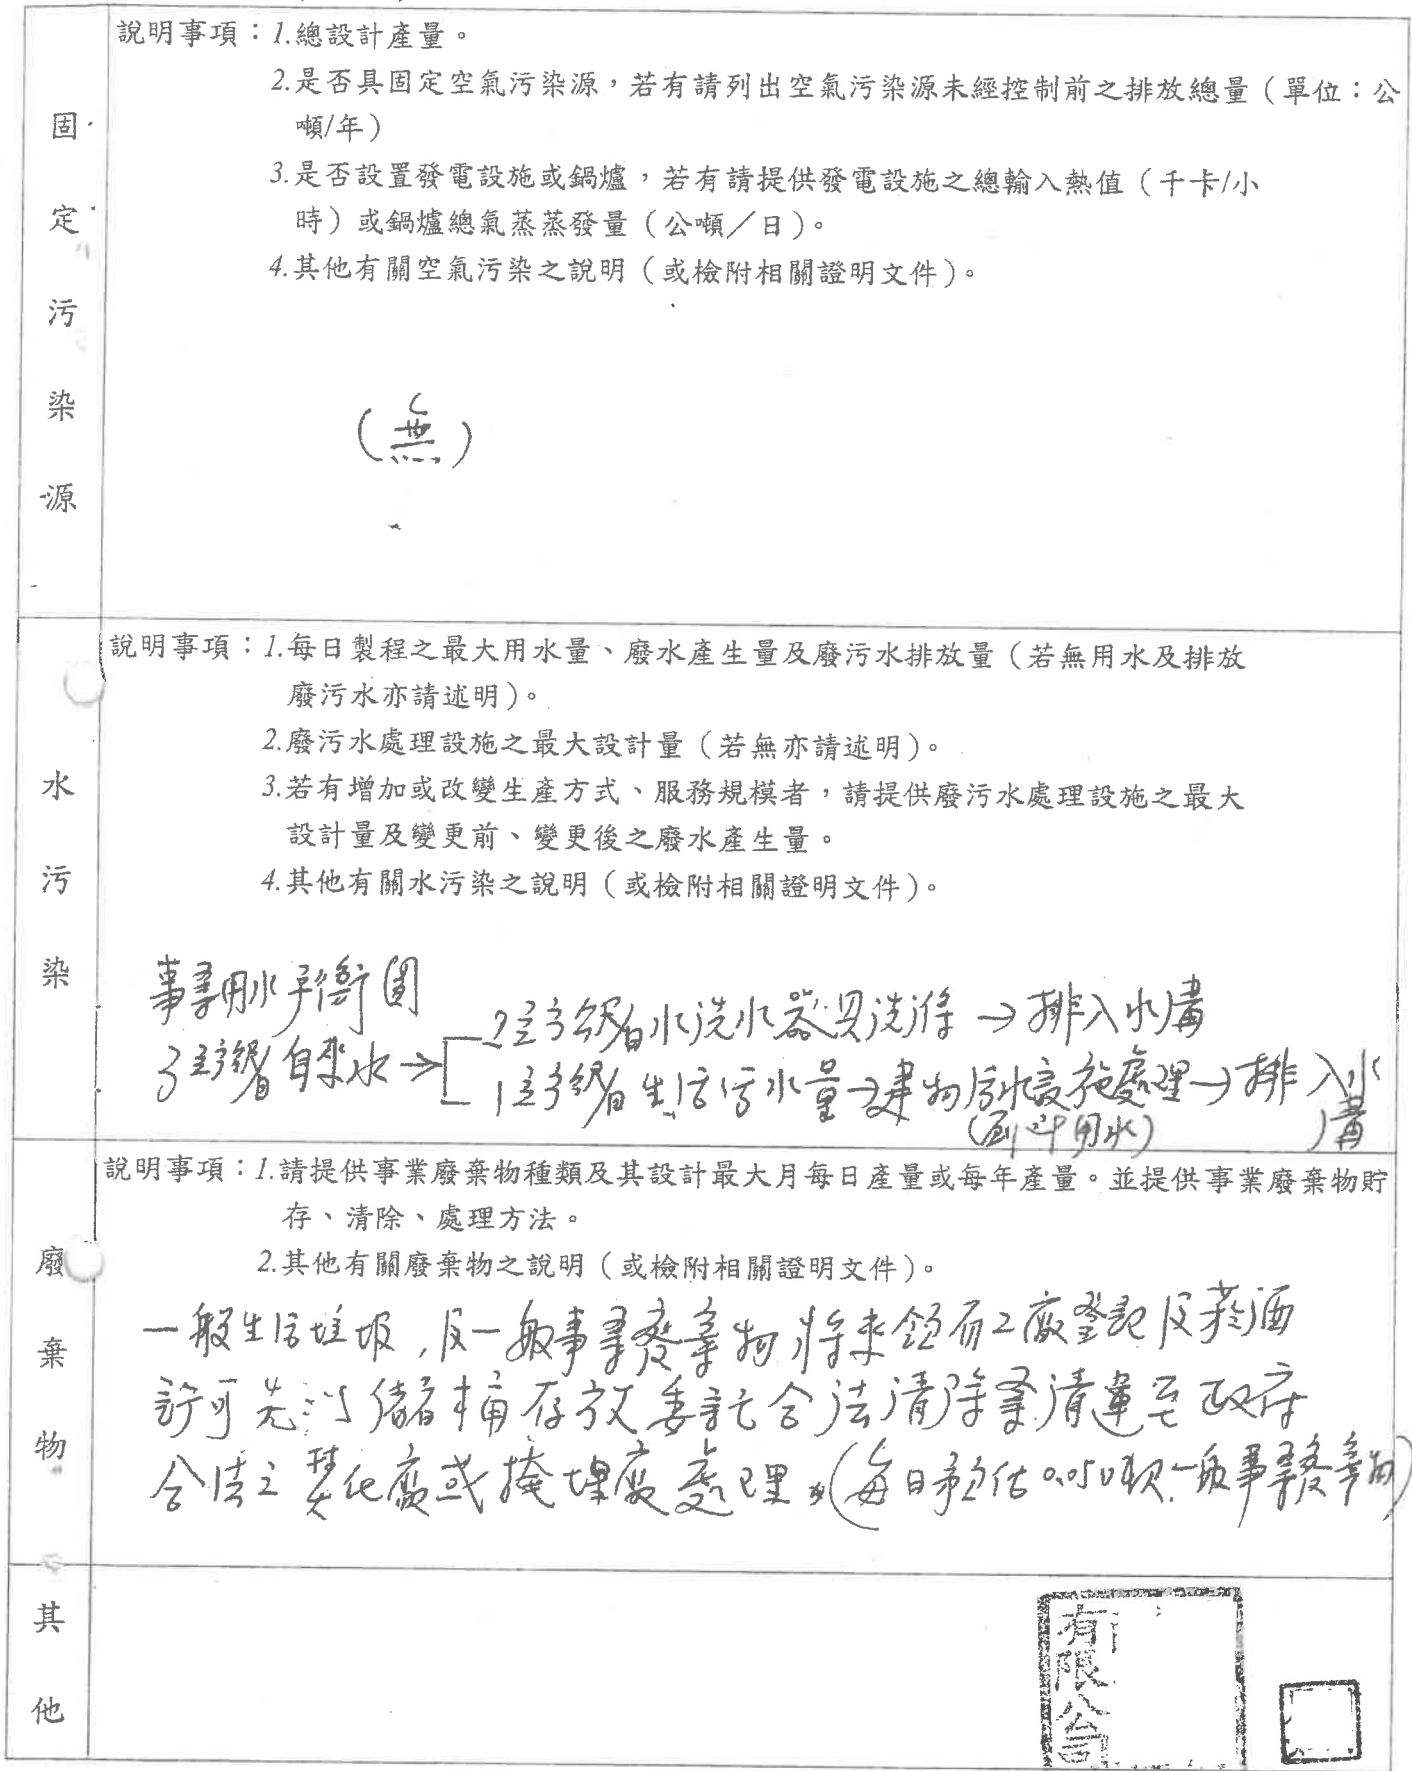 固定污染源
說明事項：1.總設計產量。
2.是否具固定空氣污染源，若有請列出空氣污染源未經控制前之排放總量（單位：公
噸/年）
3.是否設置發電設施或鍋爐，若有請提供發電設施之總輸入熱值（千卡/小
時）或鍋爐總氣蒸蒸發量（公噸／日）。
4.其他有關空氣污染之說明（或檢附相關證明文件）。
（無）
水污染
說明事項：1.每日製程之最大用水量、廢水產生量及廢污水排放量（若無用水及排放
廢污水亦請述明）。
2.廢污水處理設施之最大設計量（若無亦請述明）。
3.若有增加或改變生產方式、服務規模者，請提供廢污水處理設施之最大
設計量及變更前、變更後之廢水產生量。
4.其他有關水污染之說明（或檢附相關證明文件）。
事業用水平衡圖
3 自來水→
2 水洗水器具洗滌→排入水溝
1 生活污水量→建物污水設施處理→排入水溝
廢棄物
說明事項：1.請提供事業廢棄物種類及其設計最大月每日產量或每年產量。並提供事業廢棄物貯
存、清除、處理方法。
2.其他有關廢棄物之說明（或檢附相關證明文件）。
一般生活垃圾,及一般事業廢棄物將來領有工廠登記及菸酒
許可先以儲桶存放委託合法清除業清運至政府
合法之焚化廠或掩埋廠處理。(每日預估0.05噸一般事業廢棄物)
其他
有限公司